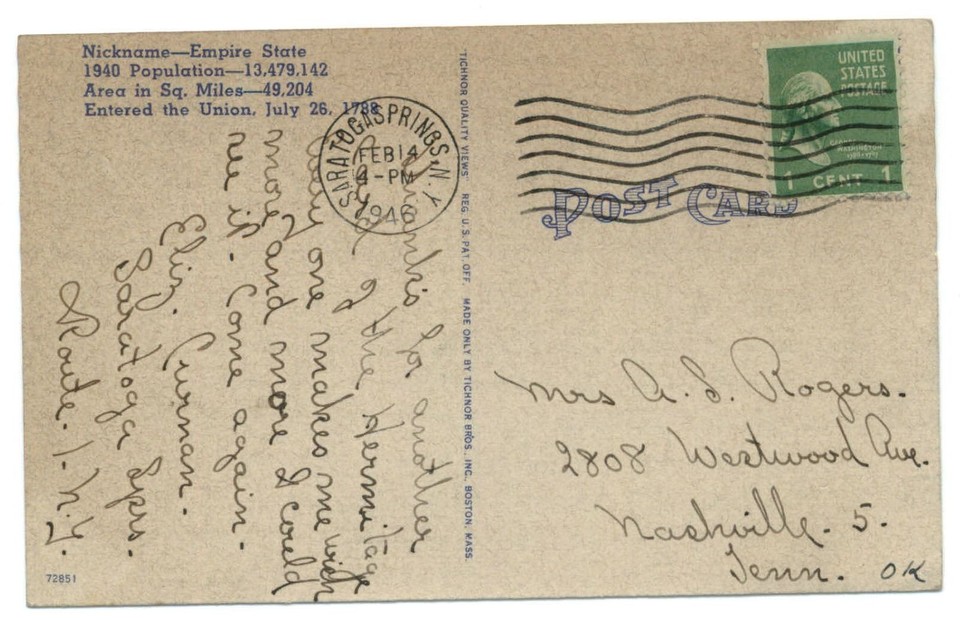 Nickname—Empire State
1940 Population—13,479,142
Area in Sq. Miles—49,204
Entered the Union, July 26, 1788
SARATOGA SPRINGS, N.Y.
FEB 14
4-PM
1946
Thanks for another
card of the Hermitage
Every one makes me wish
more and more I could
see it. Come again.
Eliz. Curnan.
Saratoga Sprs.
Route. 1. N.Y.
72851
"TICHNOR QUALITY VIEWS" REG. U. S. PAT. OFF. MADE ONLY BY TICHNOR BROS., INC., BOSTON, MASS.
UNITED
STATES
POSTAGE
GEORGE
WASHINGTON
1 CENT 1
POST CARD
Mrs A. S. Rogers.
2808 Westwood Ave.
Nashville. 5.
Tenn.
OK